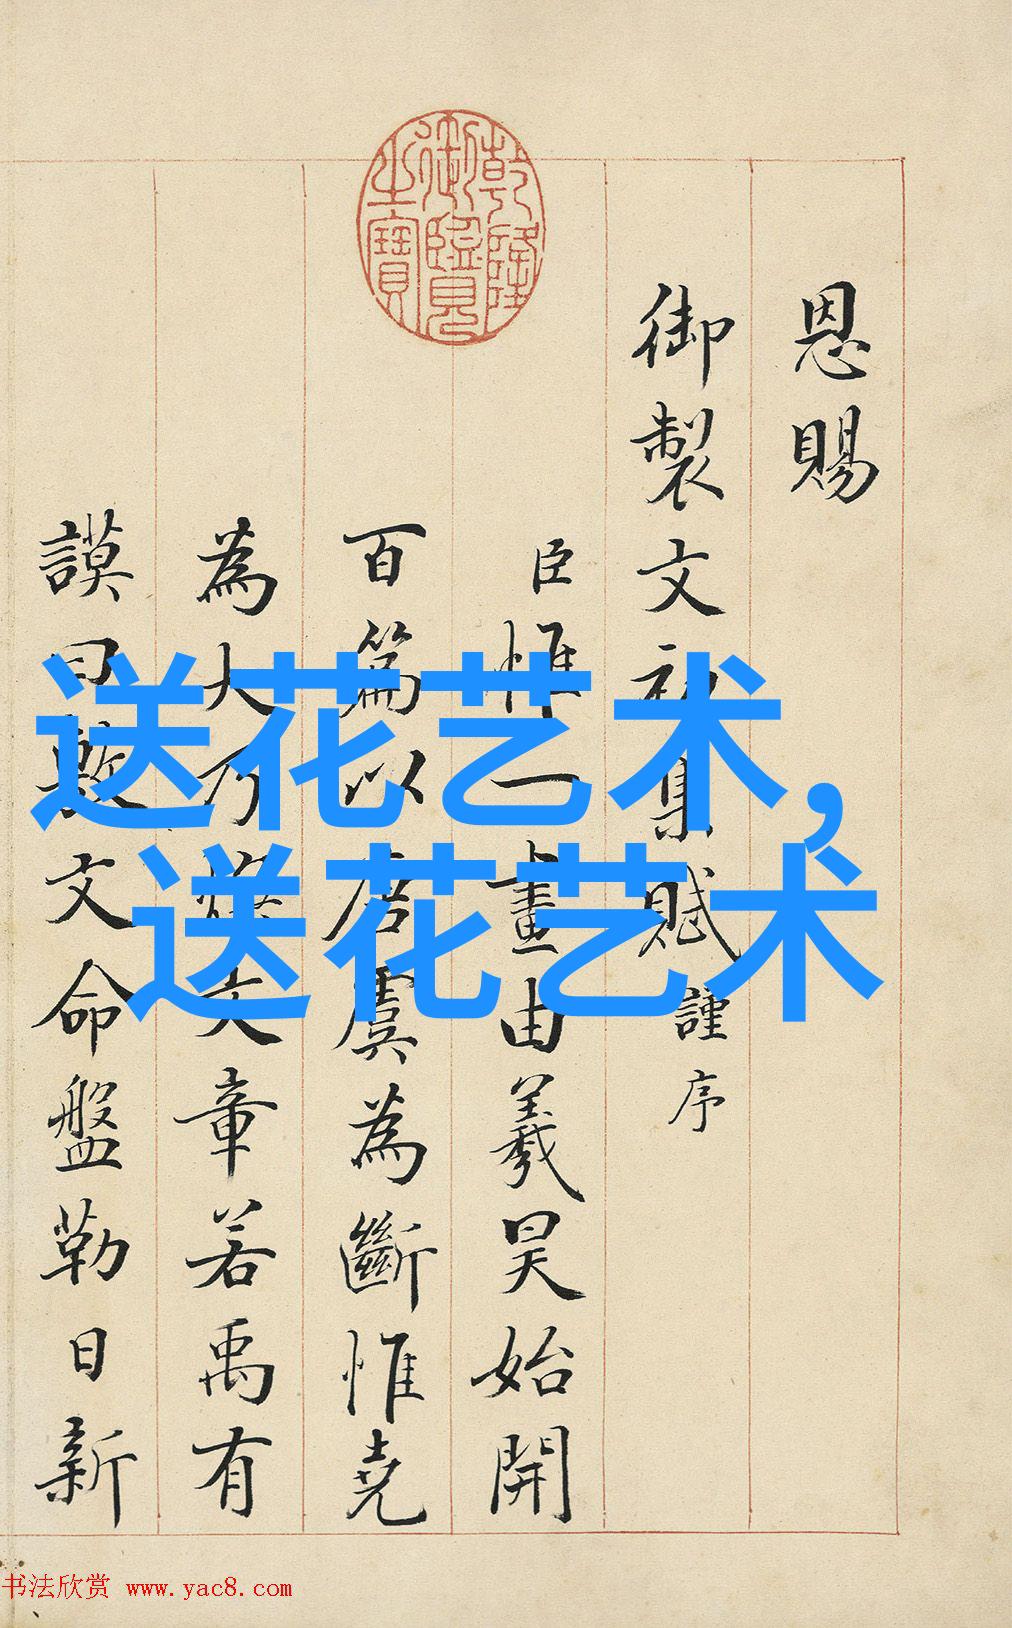 乾隆
御覽
之寶
恩賜
御製文初集賦謹序
臣惟一畫由羲昊始開
百篇以唐虞為斷惟堯
為大乃煥文章若禹有
謨曰敷文命盤勒日新
送花艺术，
送花艺术
书法欣赏 www.yac8.com